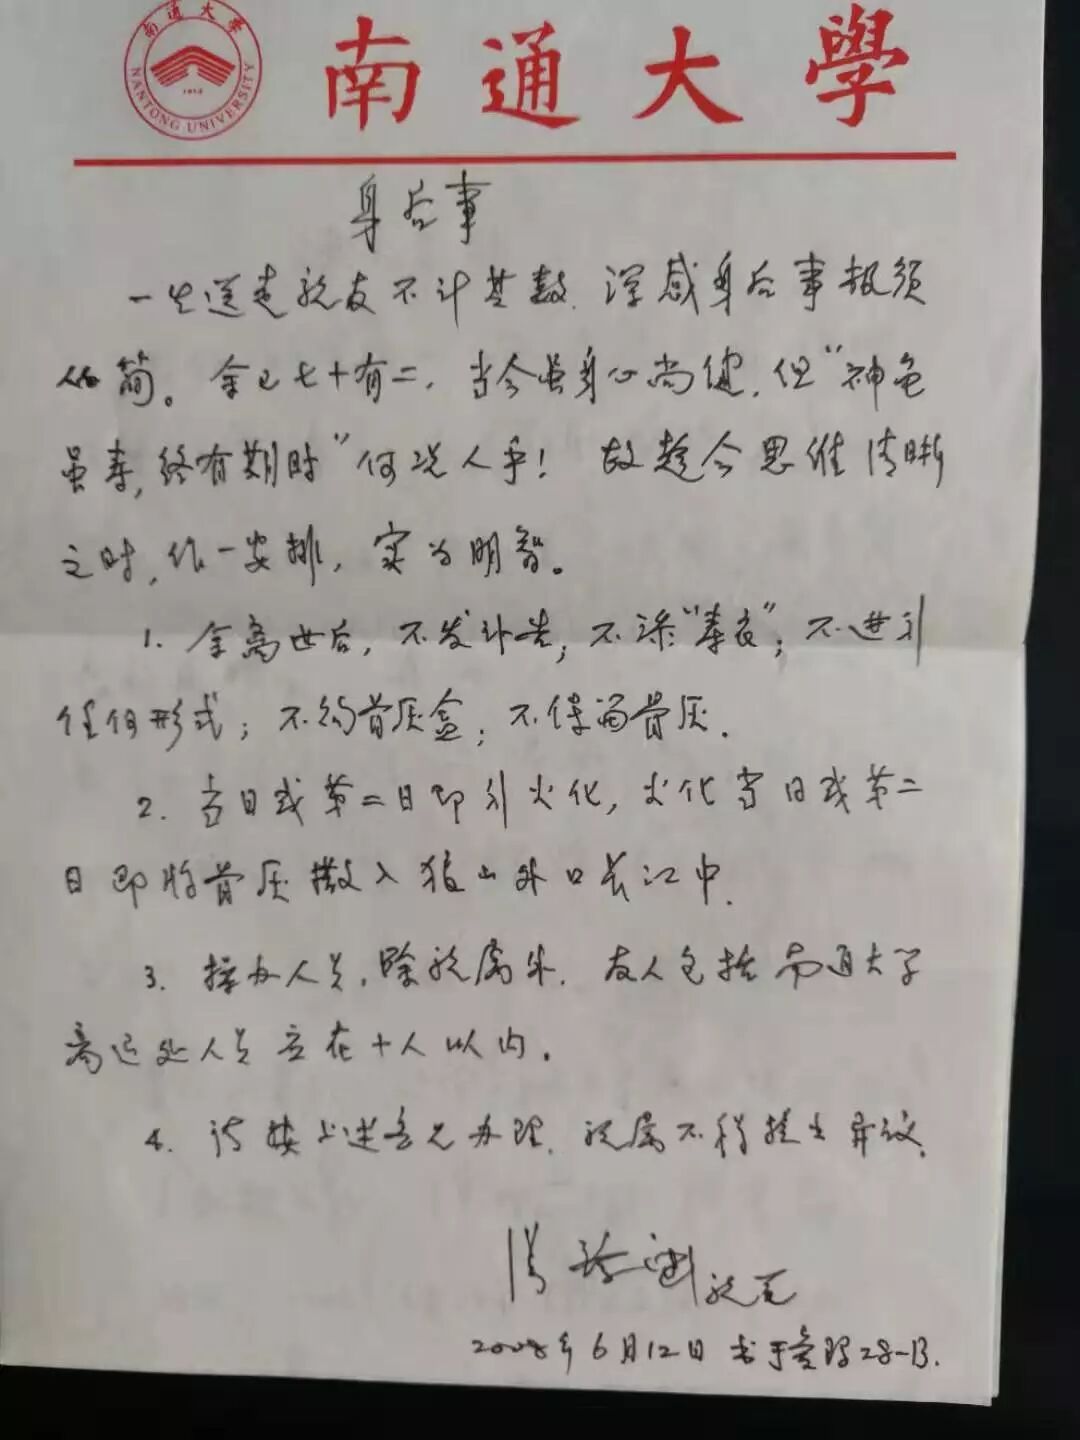 南通大學
NANTONG UNIVERSITY
1912
南通大學
身后事
一生送走亲友不计其数，深感身后事极须
从简。余已七十有二，当今虽身心尚健，但“神龟
虽寿，终有期时”何况人乎！故趁今思维清晰
之时，作一安排，实为明智。
1. 余离世后，不发讣告；不添“寿衣”；不进行
任何形式；不约骨灰盒；不保留骨灰.
2. 当日或第二日即行火化，火化当日或第二
日即将骨灰撒入狼山外口长江中.
3. 操办人员，除亲属外，友人包括南通大学
离退处人员应在十人以内.
4. 请按上述意见办理，亲属不得提出异议.
亲笔
2008年6月12日 书于 28-13.